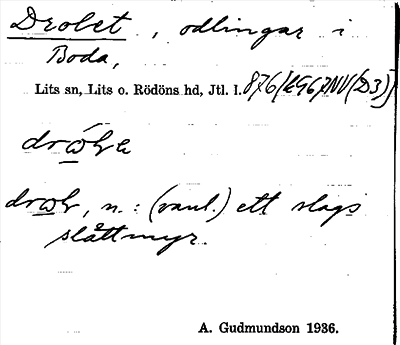 Drolet, odlingar i
Boda,
Lits sn, Lits o. Rödöns hd, Jtl. l.
n.: (vanl.) ett slags
slåttmyr.
A. Gudmundson 1936.